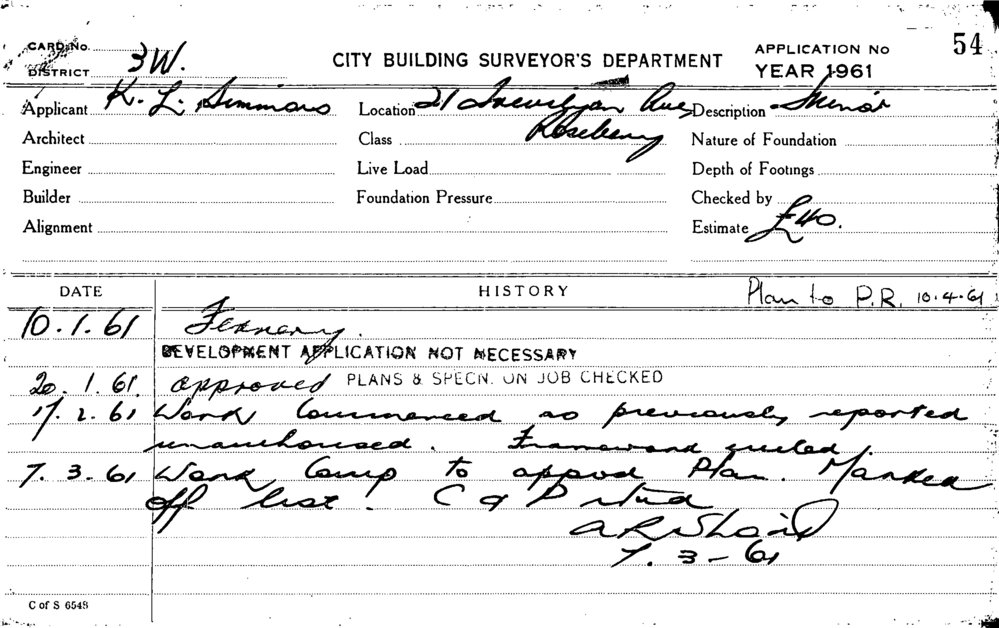 CARD No. 3W.
DISTRICT
CITY BUILDING SURVEYOR'S DEPARTMENT
APPLICATION No 54
YEAR 1961
Applicant K. L. Simmons Location 21 Trevilyan Ave Description Minor
Rosebery
Architect Class Nature of Foundation
Engineer Live Load Depth of Footings
Builder Foundation Pressure Checked by
Alignment Estimate £40.
DATE HISTORY Plan to P.R. 10.4.61
10.1.61 Fernery.
DEVELOPMENT APPLICATION NOT NECESSARY
20.1.61. approved PLANS & SPECN. ON JOB CHECKED
17.2.61 Work Commenced as previously reported
unauthorised. Framework erected.
7.3.61 Work Comp to appvd Plan. Marked
off list. C of P
7.3-61
C of S 6548